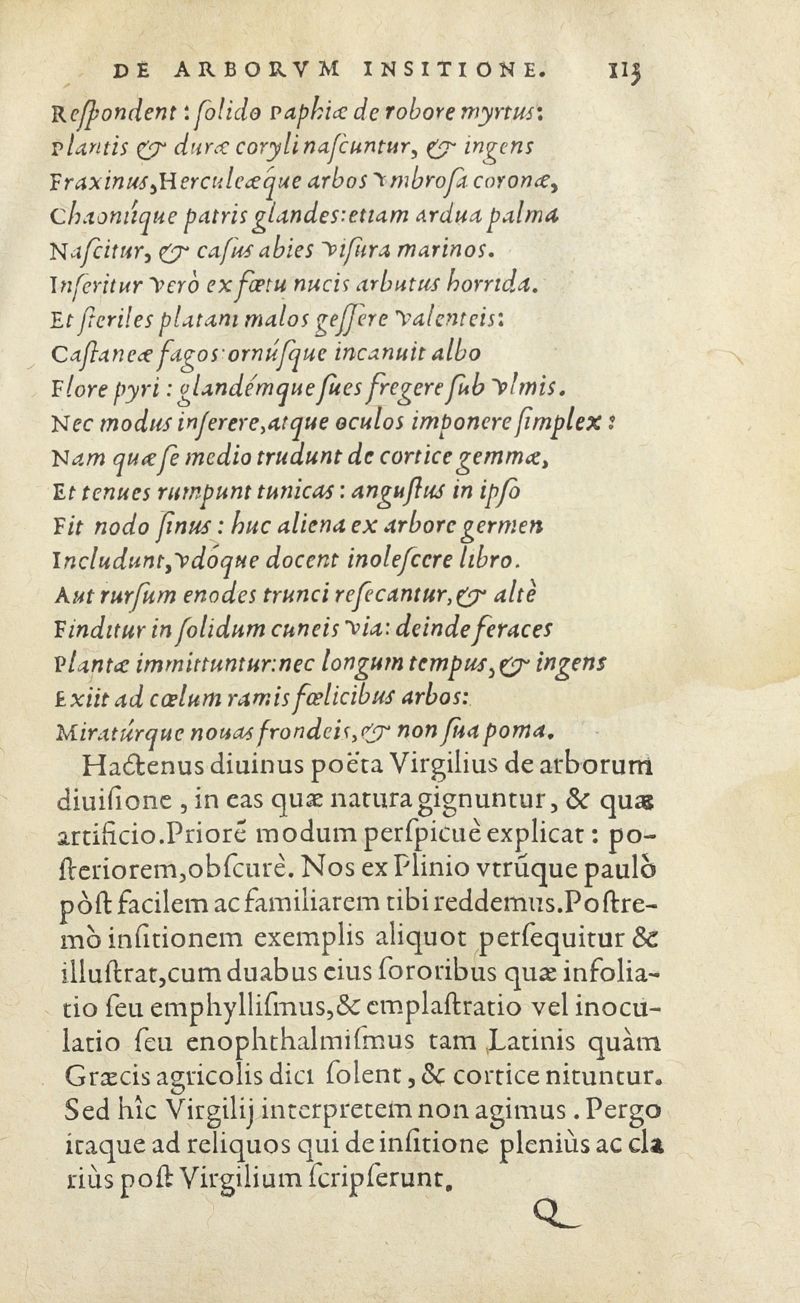 DE ARBORVM INSITIONE. 113
Reſpondent: ſolido Paphiæ de robore myrtus:
Plantis & duræ coryli naſcuntur, & ingens
Fraxinus, Herculeæque arbos vmbroſa coronæ,
Chaoniique patris glandes: etiam ardua palma
Naſcitur, & caſus abies viſura marinos.
Inſeritur verò ex fœtu nucis arbutus horrida.
Et ſteriles platani malos geſſere valenteis:
Caſtaneæ fagos: ornúſque incanuit albo
Flore pyri: glandémque ſues fregere ſub vlmis.
Nec modus inſerere, atque oculos imponere ſimplex:
Nam quæ ſe medio trudunt de cortice gemmæ,
Et tenues rumpunt tunicas: anguſtus in ipſo
Fit nodo ſinus: huc aliena ex arbore germen
Includunt, vdóque docent inoleſcere libro.
Aut rurſum enodes trunci reſecantur, & altè
Finditur in ſolidum cuneis via: deinde feraces
Plantæ immittuntur: nec longum tempus, & ingens
Exiit ad cœlum ramis fœlicibus arbos:
Miratúrque nouas frondeis, & non ſua poma.
Hactenus diuinus poëta Virgilius de arborum
diuiſione, in eas quæ natura gignuntur, & quæ
artificio. Priorē modum perſpicuè explicat: po-
ſteriorem, obſcurè. Nos ex Plinio vtrūque paulò
pòſt facilem ac familiarem tibi reddemus. Poſtre-
mò inſitionem exemplis aliquot perſequitur &
illuſtrat, cum duabus eius ſororibus quæ infolia-
tio ſeu emphylliſmus, & emplaſtratio vel inocu-
latio ſeu enophthalmiſmus tam Latinis quàm
Græcis agricolis dici ſolent, & cortice nituntur.
Sed hîc Virgilij interpretem non agimus. Pergo
itaque ad reliquos qui de inſitione pleniùs ac cla
riùs poſt Virgilium ſcripſerunt.
Q